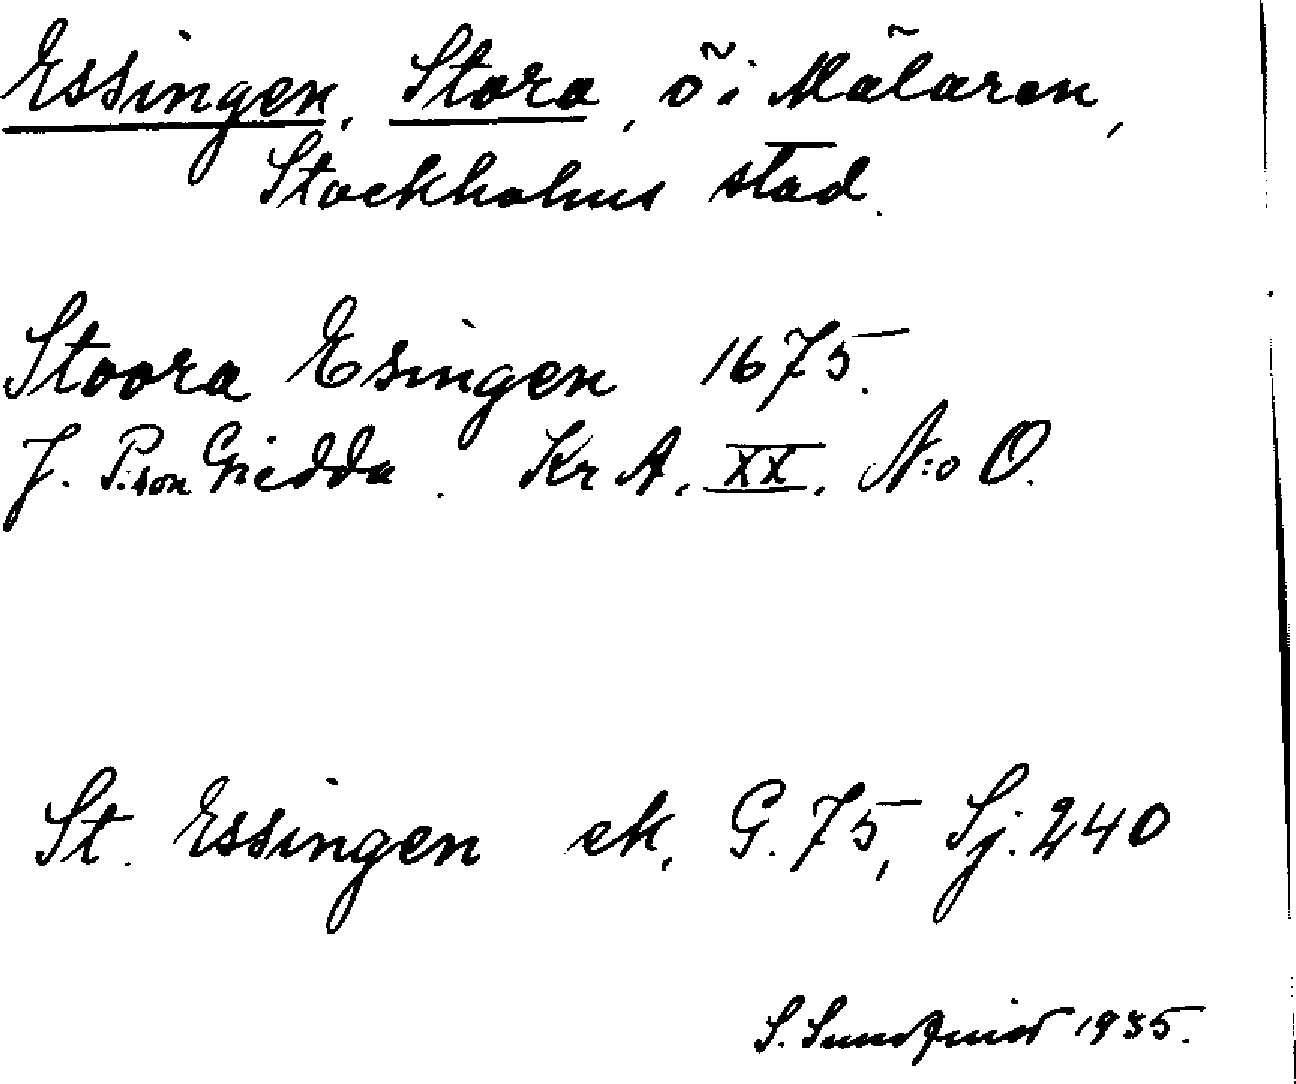 Essingen, Stora, ö i Mälaren,
Stockholms stad.
Stoora Esingen 1675.
J. P:son Giedda. Kr A, XX, N:o O.
St. Essingen ek, G. 75, Sj. 240
S. Sundquist 1935.